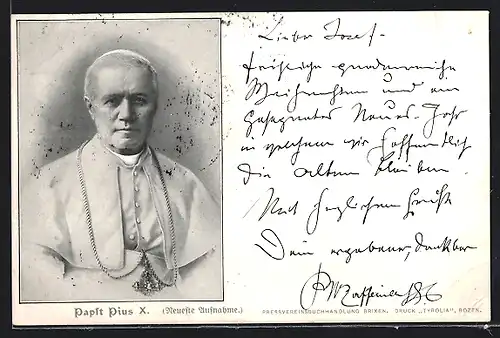 Lieber Josef-
fröhliche gnadenreiche
Weihnachten und ein
gesegnetes Neues-Jahr
in welchem wir hoffentlich
die alten bleiben.
Mit herzlichem Gruß
Dein ergebener, dankbar
Papst Pius X. (Neueste Aufnahme.)
PRESSVEREINSBUCHHANDLUNG BRIXEN. DRUCK „TYROLIA“, BOZEN.